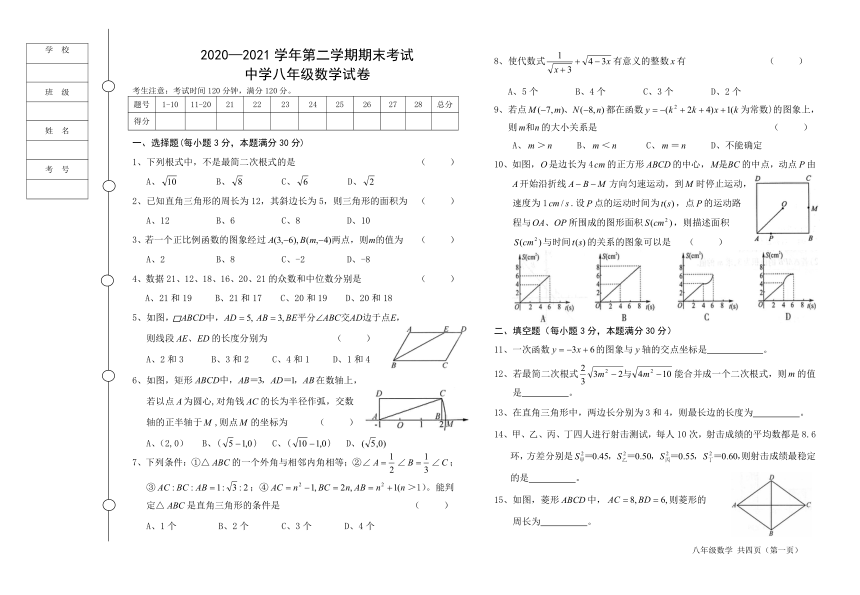 学 校
班 级
姓 名
考 号
2020—2021学年第二学期期末考试
中学八年级数学试卷
考生注意：考试时间120分钟，满分120分。
题号 1-10 11-20 21 22 23 24 25 26 27 28 总分
得分
一、选择题(每小题3分，本题满分30分)
1、下列根式中，不是最简二次根式的是 （ ）
A、√10 B、√8 C、√6 D、√2
2、已知直角三角形的周长为12，其斜边长为5，则三角形的面积为 （ ）
A、12 B、6 C、8 D、10
3、若一个正比例函数的图象经过A(3,−6), B(m,−4)两点，则m的值为 （ ）
A、2 B、8 C、-2 D、-8
4、数据21、12、18、16、20、21的众数和中位数分别是 （ ）
A、21和19 B、21和17 C、20和19 D、20和18
5、如图，▱ABCD中，AD＝5，AB＝3,BE平分∠ABC交AD边于点E，
则线段AE、ED的长度分别为 （ ）
A、2和3 B、3和2 C、4和1 D、1和4
A E D
B C
6、如图，矩形ABCD中，AB=3，AD=1，AB在数轴上，
若以点A为圆心,对角钱AC的长为半径作弧，交数
轴的正半轴于M,则点M的坐标为 （ ）
A、(2,0) B、(√5−1,0) C、(√10−1,0) D、(√5,0)
D C
A B
-1 0 1 2 M
7、下列条件；①△ABC的一个外角与相邻内角相等；②∠A=1/2∠B=1/3∠C；
③AC:BC:AB=1:√3:2；④AC=n²−1,BC=2n,AB=n²+1(n>1)。能判
定△ABC是直角三角形的条件是 （ ）
A、1个 B、2个 C、3个 D、4个
8、使代数式1/√(x+3)+√(4−3x)有意义的整数x有 （ ）
A、5个 B、4个 C、3个 D、2个
9、若点M(−7,m)、N(−8,n)都在函数y=−(k²+2k+4)x+1(k为常数)的图象上，
则m和n的大小关系是 （ ）
A、m＞n B、m＜n C、m＝n D、不能确定
10、如图，O是边长为4cm的正方形ABCD的中心，M是BC的中点，动点P由
A开始沿折线A−B−M方向匀速运动，到M时停止运动，
速度为1cm/s.设P点的运动时间为t(s)，点P的运动路
程与OA、OP所围成的图形面积S(cm²)，则描述面积
S(cm²)与时间t(s)的关系的图象可以是 （ ）
D C
O M
A P B
S(cm²) S(cm²) S(cm²) S(cm²)
8 8 8 8
6 6 6 6
4 4 4 4
2 2 2 2
0 2 4 6 8 t(s) 0 2 4 6 8 t(s) 0 2 4 6 8 t(s) 0 2 4 6 8 t(s)
A B C D
二、填空题（每小题3分，本题满分30分）
11、一次函数y=−3x+6的图象与y轴的交点坐标是 。
12、若最简二次根式2/3√(3m²−2)与√(4m²−10)能合并成一个二次根式，则m的值
是 。
13、在直角三角形中，两边长分别为3和4，则最边的长度为 。
14、甲、乙、丙、丁四人进行射击测试，每人10次，射击成绩的平均数都是8.6
环,方差分别是S²甲=0.45，S²乙=0.50，S²丙=0.55，S²丁=0.60,则射击成绩最稳定
的是 。
15、如图，菱形ABCD中，AC=8,BD=6,则菱形的
周长为 。
D
A C
B
八年级数学 共四页（第一页）